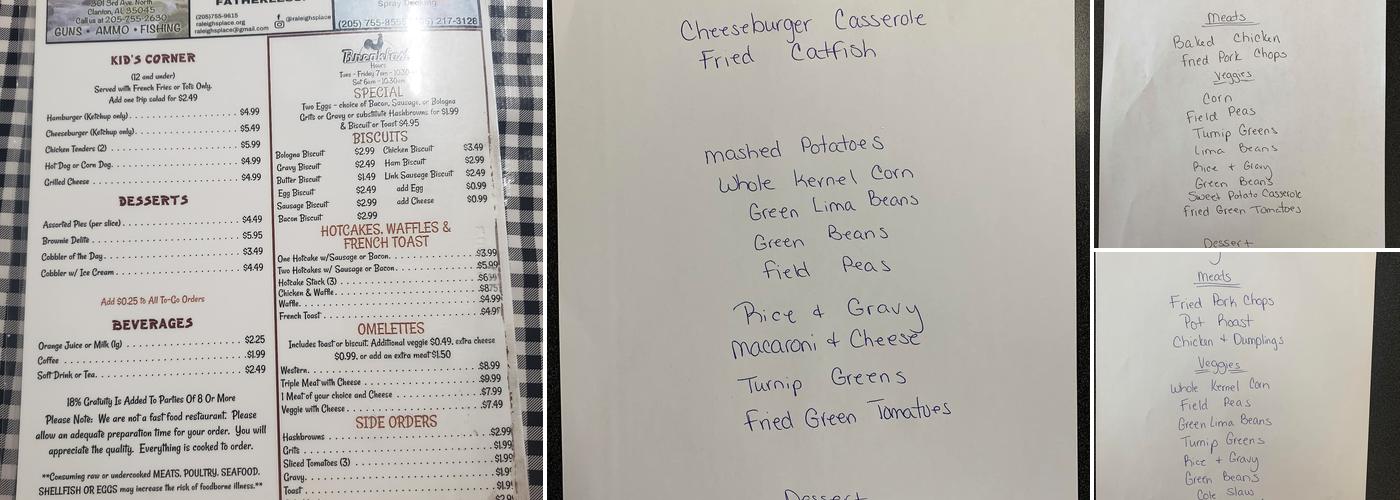 301 3rd Ave. North
Clanton, AL 35045
Call us at 205-755-2630
GUNS • AMMO • FISHING
(205)755-9615
raleighsplace.org
raleighsplace@gmail.com
@raleighsplace
Spray Decking
(205) 755-855
217-3128
KID'S CORNER
(12 and under)
Served with French Fries or Tots Only.
Add one trip salad for $2.49
Hamburger (Ketchup only) $4.99
Cheeseburger (Ketchup only) $5.49
Chicken Tenders (2) $5.99
Hot Dog or Corn Dog $4.99
Grilled Cheese $4.99
DESSERTS
Assorted Pies (per slice) $4.49
Brownie Delite $5.95
Cobbler of the Day $3.49
Cobbler w/ Ice Cream $4.49
Add $0.25 to All To-Go Orders
BEVERAGES
Orange Juice or Milk (lg) $2.25
Coffee $1.99
Soft Drink or Tea $2.49
18% Gratuity Is Added To Parties Of 8 Or More
Please Note: We are not a fast food restaurant. Please
allow an adequate preparation time for your order. You will
appreciate the quality. Everything is cooked to order.
**Consuming raw or undercooked MEATS, POULTRY, SEAFOOD,
SHELLFISH OR EGGS may increase the risk of foodborne illness.**
Breakfast
Hours
Tues - Friday 7am - 10:30
Sat 6am - 10:30am
SPECIAL
Two Eggs - choice of Bacon, Sausage, or Bologna
Grits or Gravy or substitute Hashbrowns for $1.99
& Biscuit or Toast $4.95
BISCUITS
Bologna Biscuit $2.99 Chicken Biscuit $3.49
Gravy Biscuit $2.49 Ham Biscuit $2.99
Butter Biscuit $1.49 Link Sausage Biscuit $2.49
Egg Biscuit $2.49 add Egg $0.99
Sausage Biscuit $2.99 add Cheese $0.99
Bacon Biscuit $2.99
HOTCAKES, WAFFLES &
FRENCH TOAST
One Hotcake w/Sausage or Bacon $3.99
Two Hotcakes w/ Sausage or Bacon $5.99
Hotcake Stack (3)
Chicken & Waffle
Waffle $4.99
French Toast
OMELETTES
Includes toast or biscuit. Additional veggie $0.49, extra cheese
$0.99, or add an extra meat $1.50
Western $8.99
Triple Meat with Cheese $9.99
1 Meat of your choice and Cheese $7.99
Veggie with Cheese $7.49
SIDE ORDERS
Hashbrowns $2.99
Grits $1.99
Sliced Tomatoes (3) $1.99
Gravy
Toast
Cheeseburger Casserole
Fried Catfish
mashed Potatoes
Whole Kernel Corn
Green Lima Beans
Green Beans
Field Peas
Rice & Gravy
Macaroni & Cheese
Turnip Greens
Fried Green Tomatoes
Dessert
Meats
Baked Chicken
Fried Pork Chops
Veggies
Corn
Field Peas
Turnip Greens
Lima Beans
Rice & Gravy
Green Beans
Sweet Potato Casserole
Fried Green Tomatoes
Dessert
Meats
Fried Pork Chops
Pot Roast
Chicken & Dumplings
Veggies
Whole Kernel Corn
Field Peas
Green Lima Beans
Turnip Greens
Rice & Gravy
Green Beans
Cole Slaw